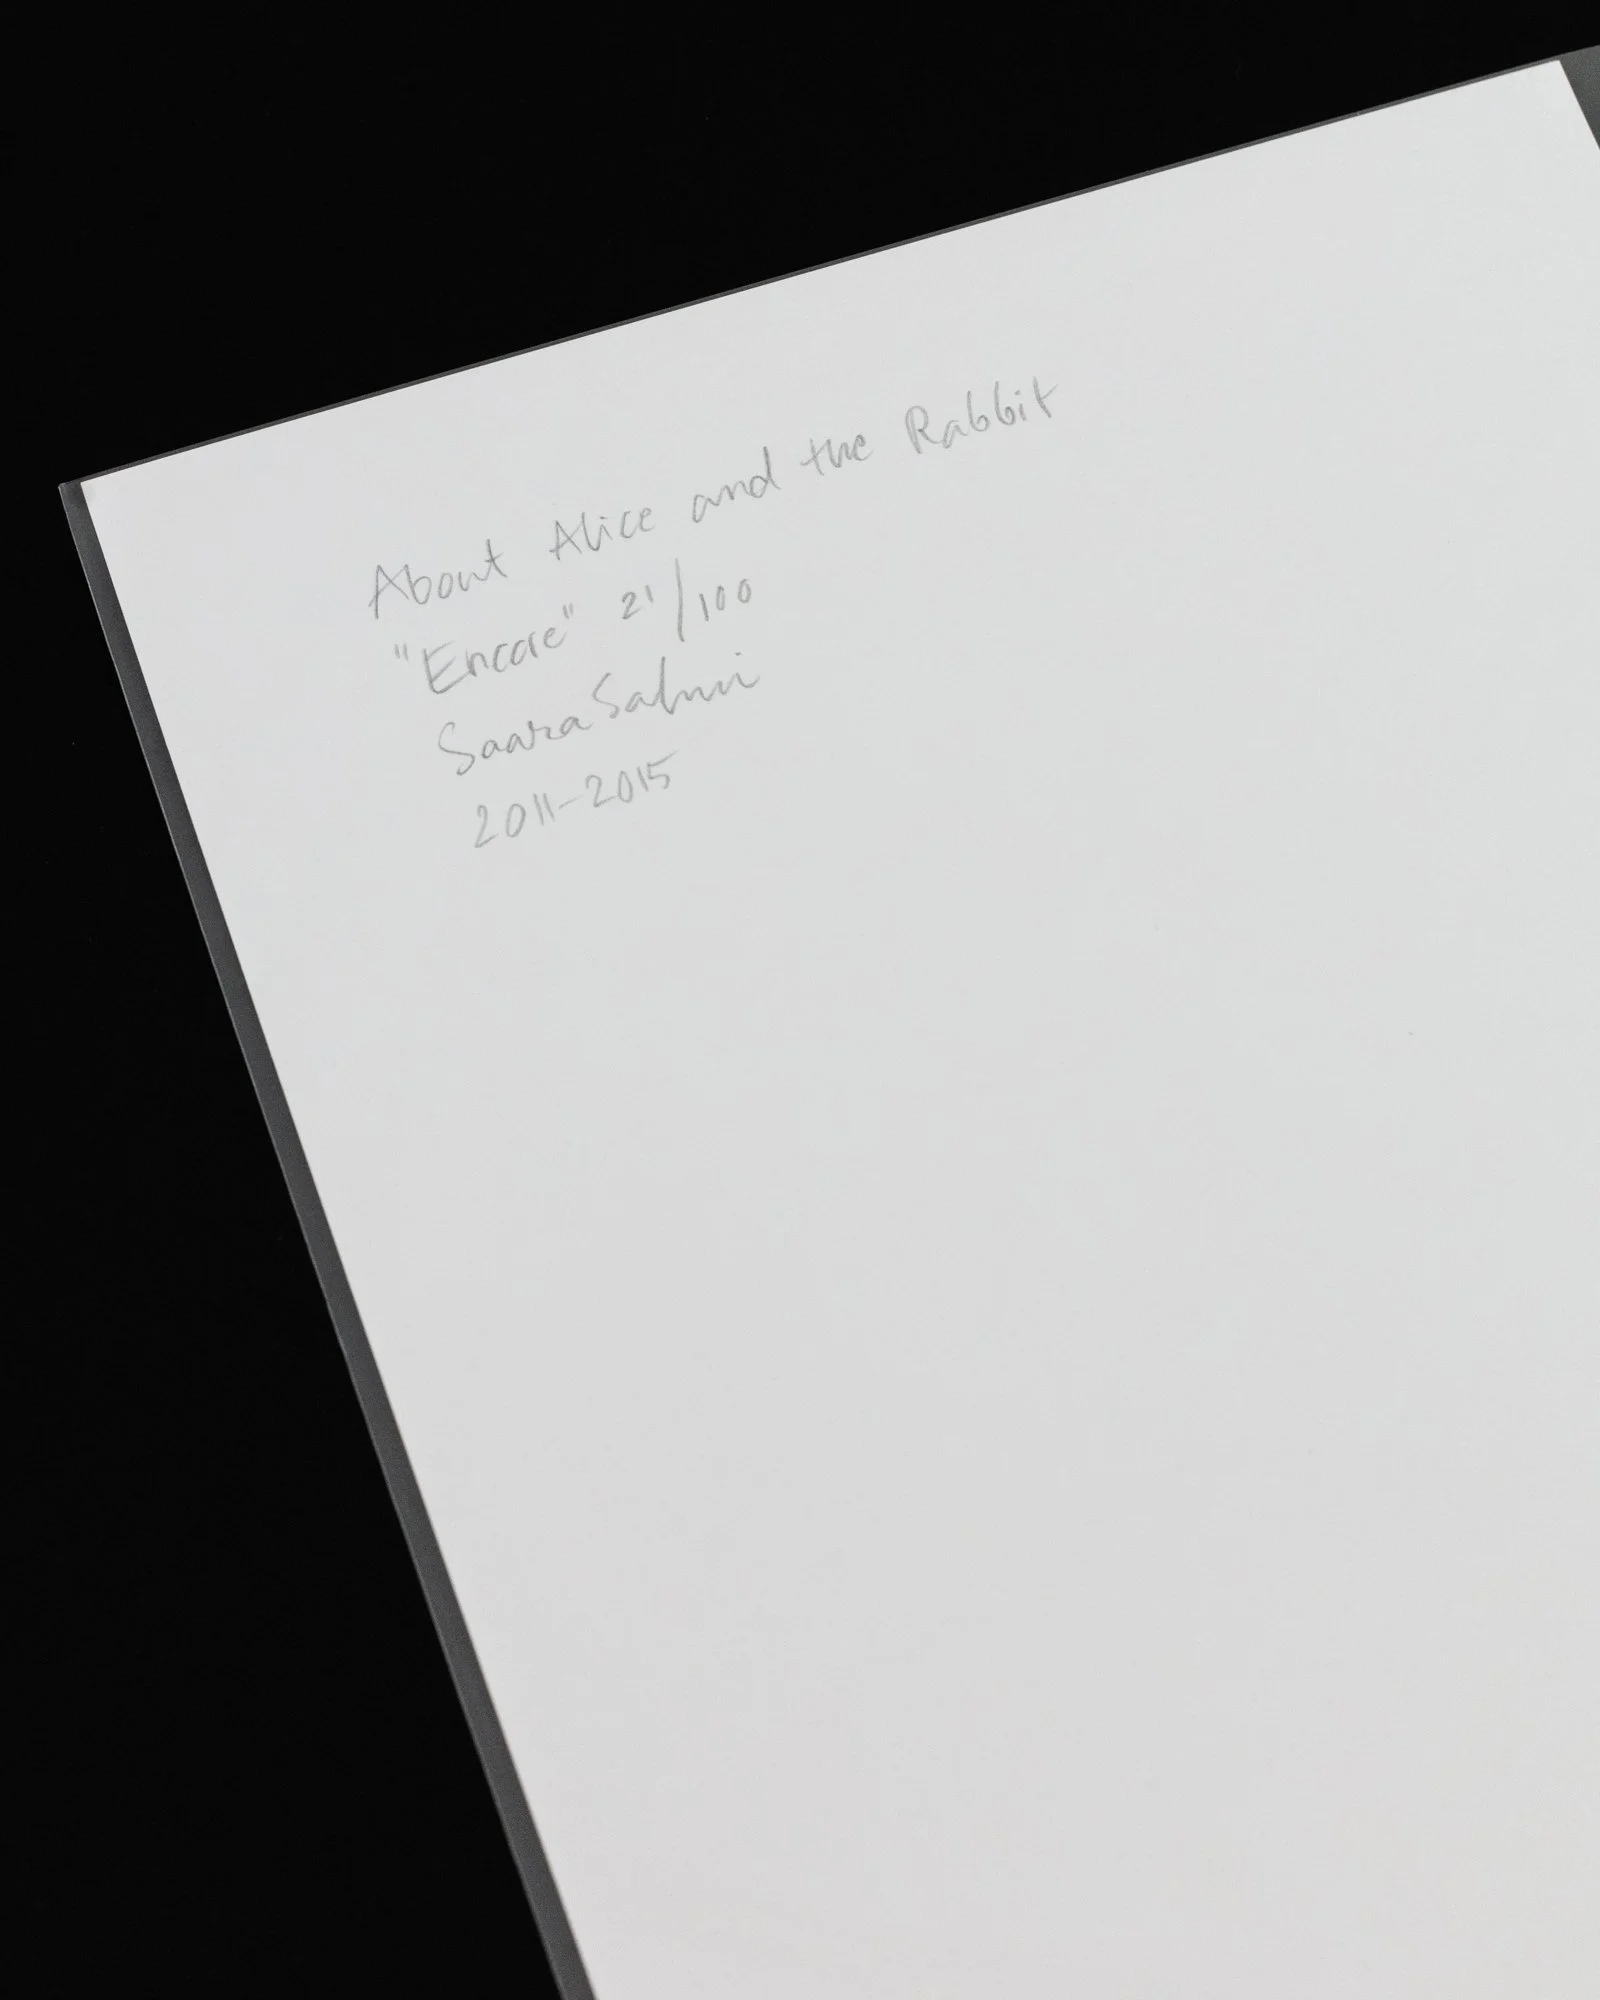 About Alice and the Rabbit
"Encore" 21/100
Saara Salmi
2011-2015